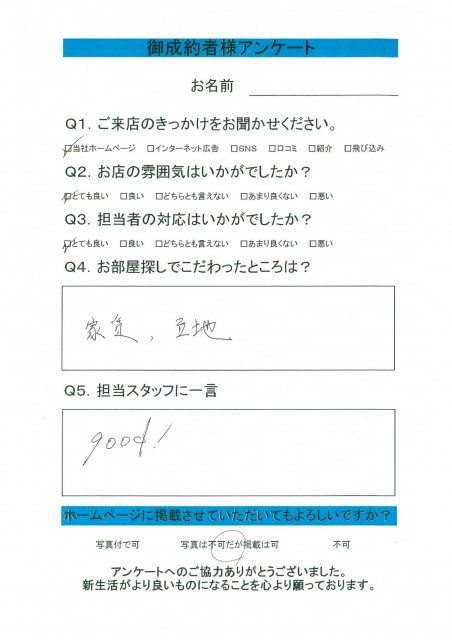 御成約者様アンケート
お名前
Q1. ご来店のきっかけをお聞かせください。
☑当社ホームページ □インターネット広告 □SNS □口コミ □紹介 □飛び込み
Q2. お店の雰囲気はいかがでしたか？
☑とても良い □良い □どちらとも言えない □あまり良くない □悪い
Q3. 担当者の対応はいかがでしたか？
☑とても良い □良い □どちらとも言えない □あまり良くない □悪い
Q4. お部屋探しでこだわったところは？
家賃、立地
Q5. 担当スタッフに一言
good!
ホームページに掲載させていただいてもよろしいですか？
写真付で可 写真は不可だが掲載は可 不可
アンケートへのご協力ありがとうございました。
新生活がより良いものになることを心より願っております。